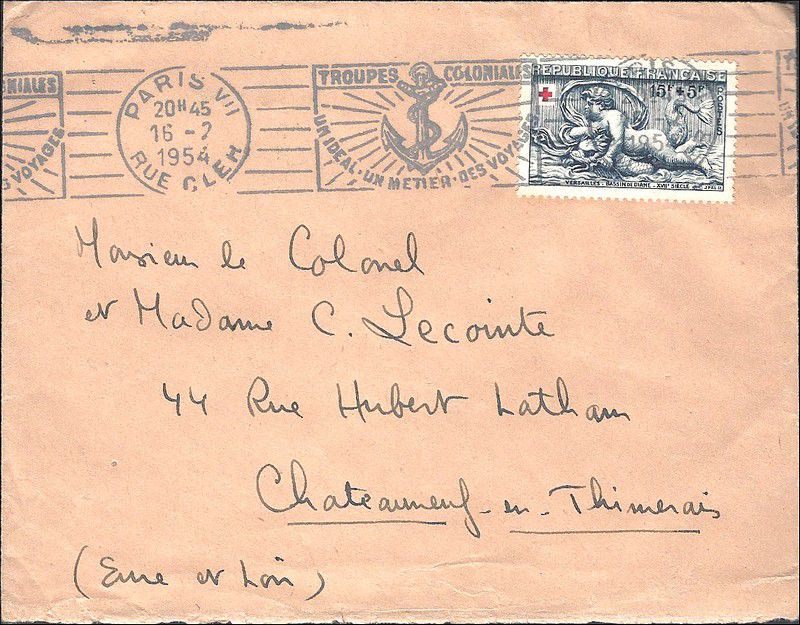 NIALES
S VOYAGES
PARIS VII
20H45
16 - 2
1954
RUE CLER
TROUPES COLONIALES
UN IDEAL · UN METIER · DES VOYAGES
REPUBLIQUE FRANÇAISE
15F + 5F
POSTES
1954
VERSAILLES - BASSIN DE DIANE - XVIIe SIÈCLE
Monsieur le Colonel
et Madame C. Lecointe
44 Rue Hubert Latham
Chateauneuf-en-Thimerais
(Eure et Loir)